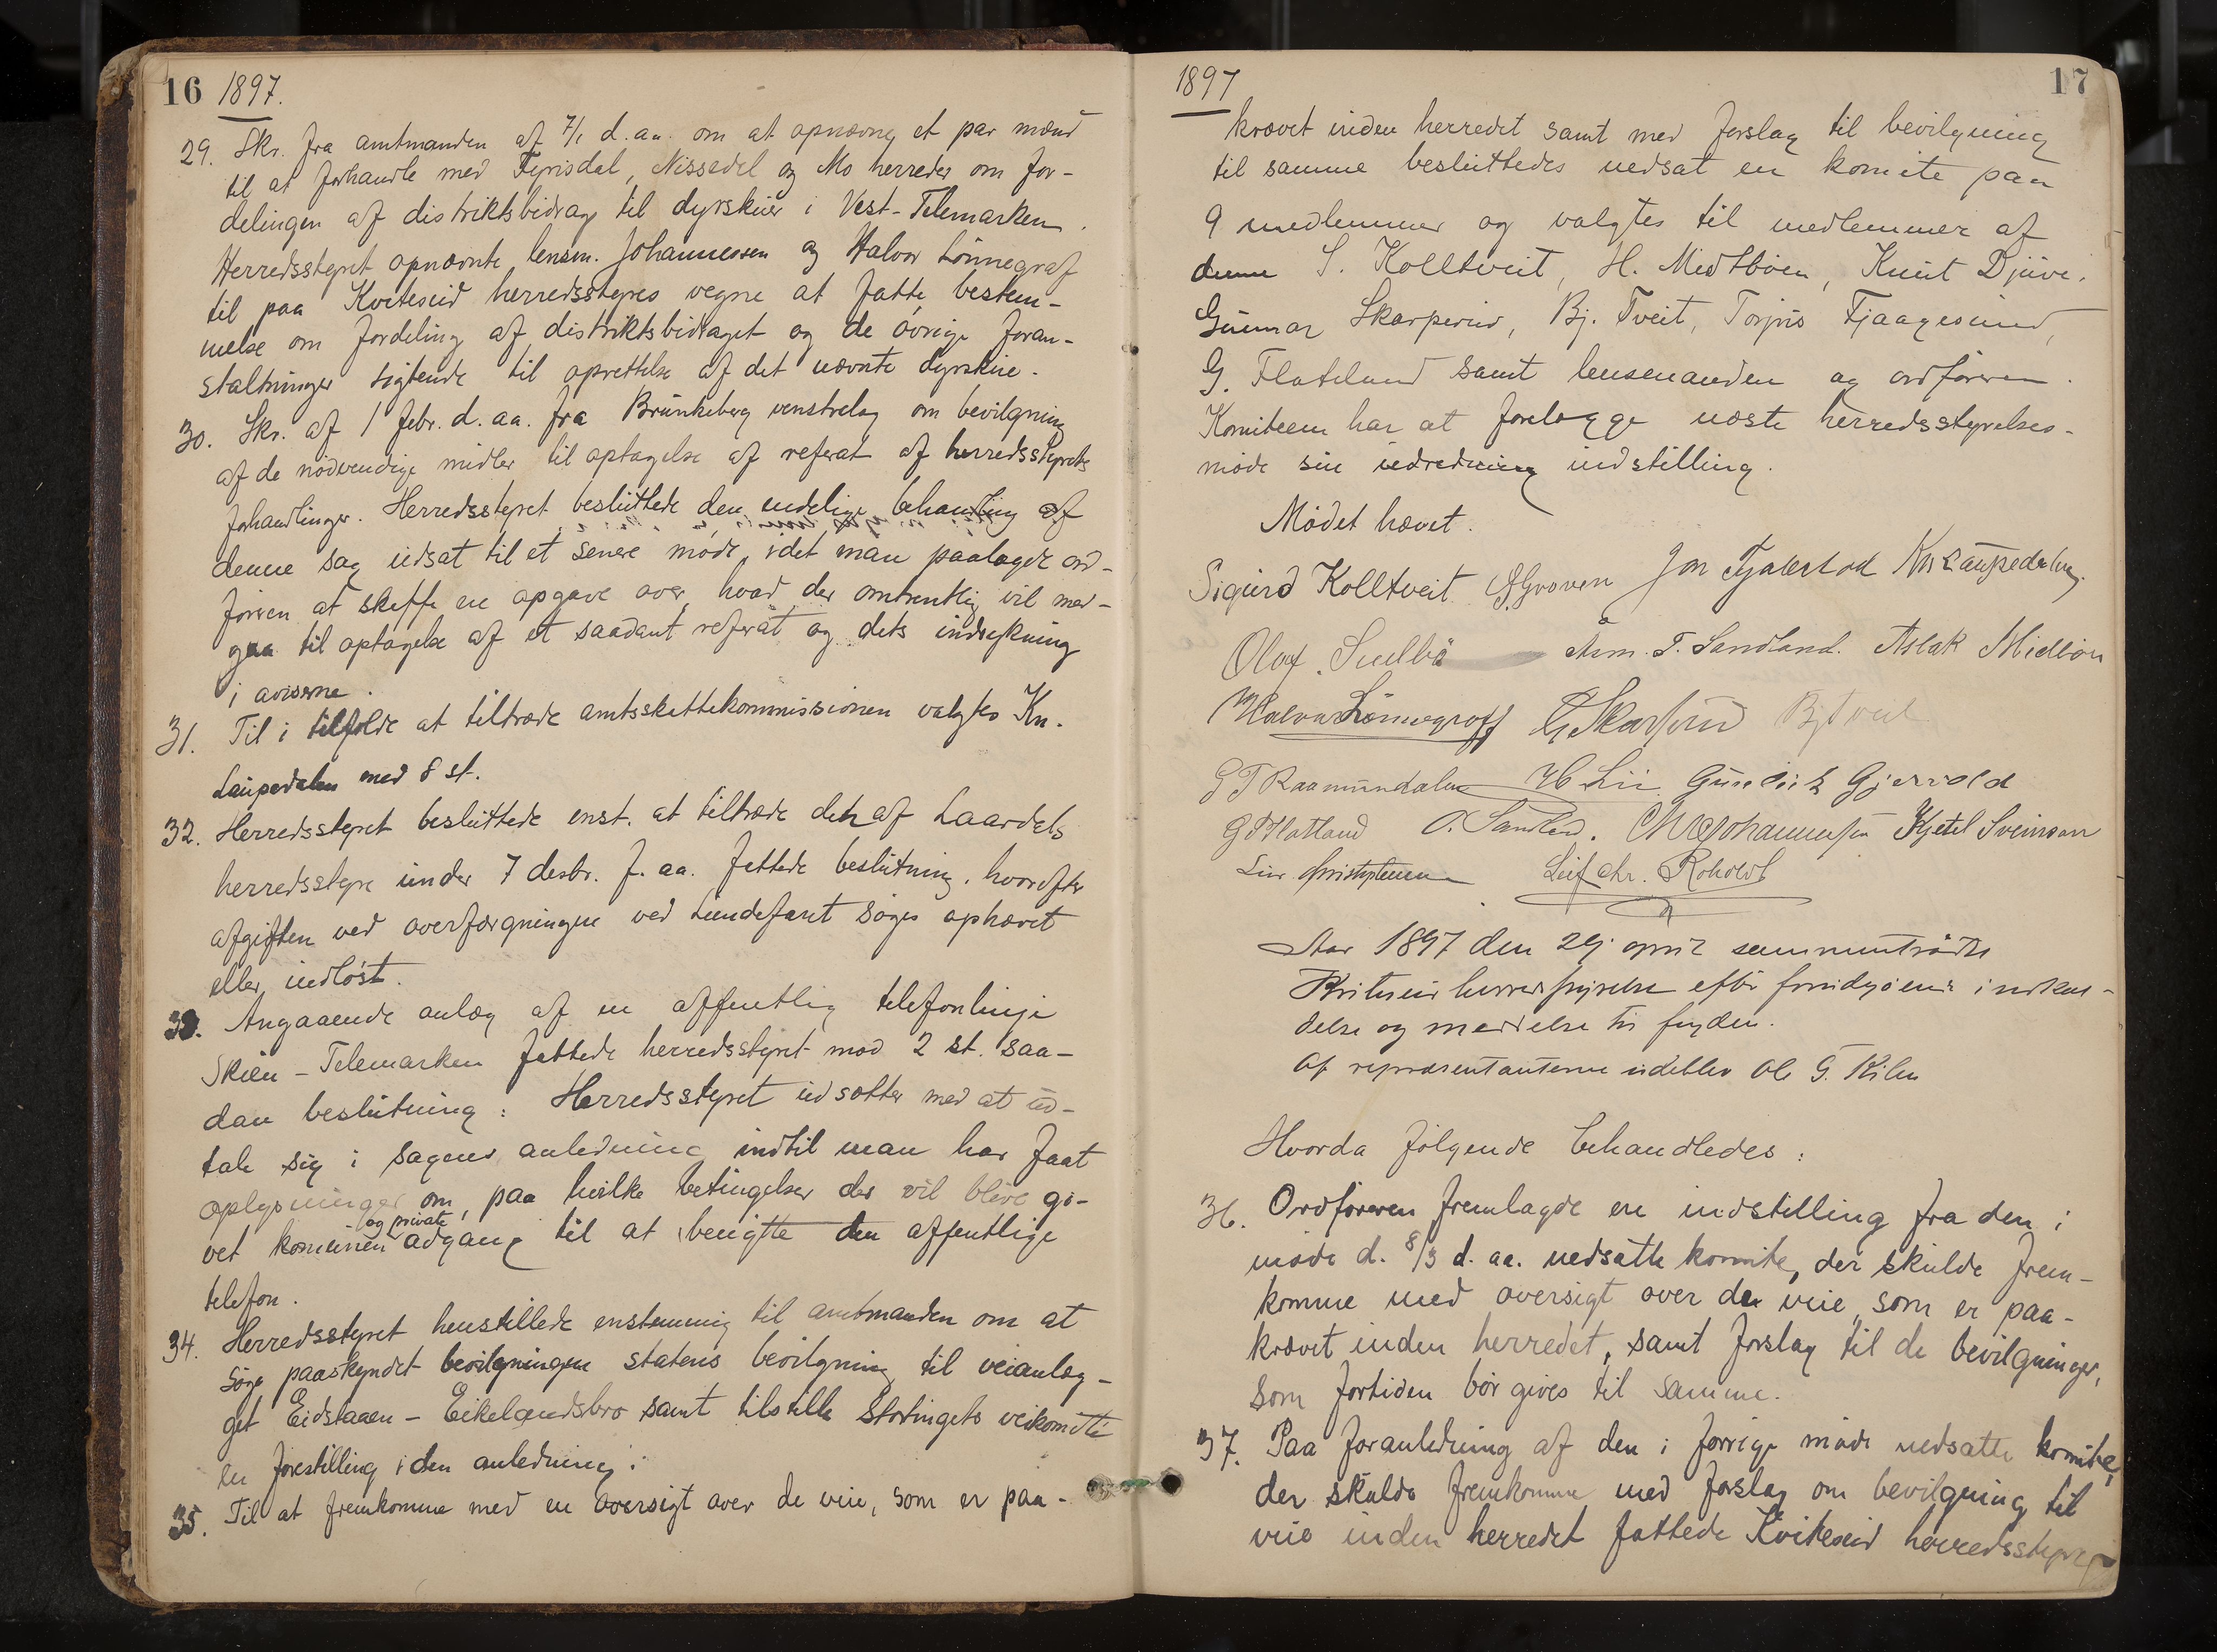 16 1897.
29. Skr. fra amtmanden af 7/1 d. aa. om at opnævne et par mænd
til at forhandle med Fyrisdal, Nissedal og Mo herreder om for-
delingen af distriktsbidrag til dyrskuer i Vest-Telemarken.
Herredsstyret opnævnte lensm. Johannessen og Halvor Lönnegraf
til paa Kviteseid herredsstyres vegne at fatte bestem-
melse om fordeling af distriktsbidraget og de övrige foran-
staltninger sigtende til oprettelse af det nævnte dyrskue.
30. Skr. af 1 febr. d. aa. fra Brunkeberg venstrelag om bevilgning
af de nödvendige midler til optagelse af referat af herredsstyrets
forhandlinger. Herredsstyret besluttede den endelige behandling af
denne sag udsat til et senere möde, idet man paalagde ord-
föreren at skaffe en opgave over, hvad der omtrentlig vil med-
gaa til optagelse af et saadant referat og dets indrykning
i aviserne.
31. Til i tilfelde at tiltræde amtsskattekommissionen valgtes Kn.
Laupedalen med 8 st.
32. Herredsstyret besluttede enst. at tiltræde den af Laardals
herredsstyre under 7 desbr. f. aa. fattede beslutning, hvorefter
afgiften ved overfærgningen ved Sundefaret söges ophævet
eller indlöst.
33. Angaaende anlæg af en offentlig telefonlinje
Skien-Telemarken fattede herredsstyret mod 2 st. saa-
dan beslutning: Herredsstyret udsætter med at ud-
tale sig i sagens anledning indtil man har faat
oplysninger om, paa hvilke betingelser der vil blive gi-
vet komunen og private adgang til at benytte den offentlige
telefon.
34. Herredsstyret henstillede enstemmig til amtmanden om at
söge paaskyndet bevilgningen statens bevilgning til veianlæg-
get Eidstaaen-Eikelandsbro samt tilstille Stortingets veikomite
en forestilling i den anledning.
35. Til at fremkomme med en oversigt over de veie, som er paa-
1897 17
krævet inden herredet samt med forslag til bevilgning
til samme besluttedes nedsat en komite paa
9 medlemmer og valgtes til medlemmer af
denne S. Kolltveit, H. Midtböen, Knut Djuve,
Gunnar Skarperud, Bj. Tveit, Torjus Fjaagesund,
G. Flateland samt lensmanden og ordföreren.
Komiteen har at forelægge næste herredsstyrelses-
möde sin udredning indstilling.
Mödet hævet.
Sigurd Kolltveit Groven Jon Tjalestad Kn Laupedalen.
Olav Sudbö Asm. T. Sandland. Aslak Midbön
Halvor Lönnegraff G Skarperud Bj Tveit
G T Raamundalen H Lii Gunleik Gjervold
G Flatland O. Sandland. Johannesen Kjetil Sveinson
Leif Chr. Roholdt
Aar 1897 den 29 april sammentraadte
Kviteseid herredsstyrelse efter forudgaaende indkal-
delse og meddelelse til fogden.
Af representanterne udeblev Ole G. Kilen
Hvorda fölgende behandledes:
36. Ordföreren fremlagde en indstilling fra den i
möde d. 8/3 d. aa. nedsatte komite, der skulde frem-
komme med oversigt over de veie, som er paa-
krævet inden herredet, samt forslag til de bevilgninger,
som fortiden bör gives til samme.
37. Paa foranledning af den i forrige möde nedsatte komite,
der skulde fremkomme med forslag om bevilgning til
veie inden herredet fattede Kviteseid herredsstyre